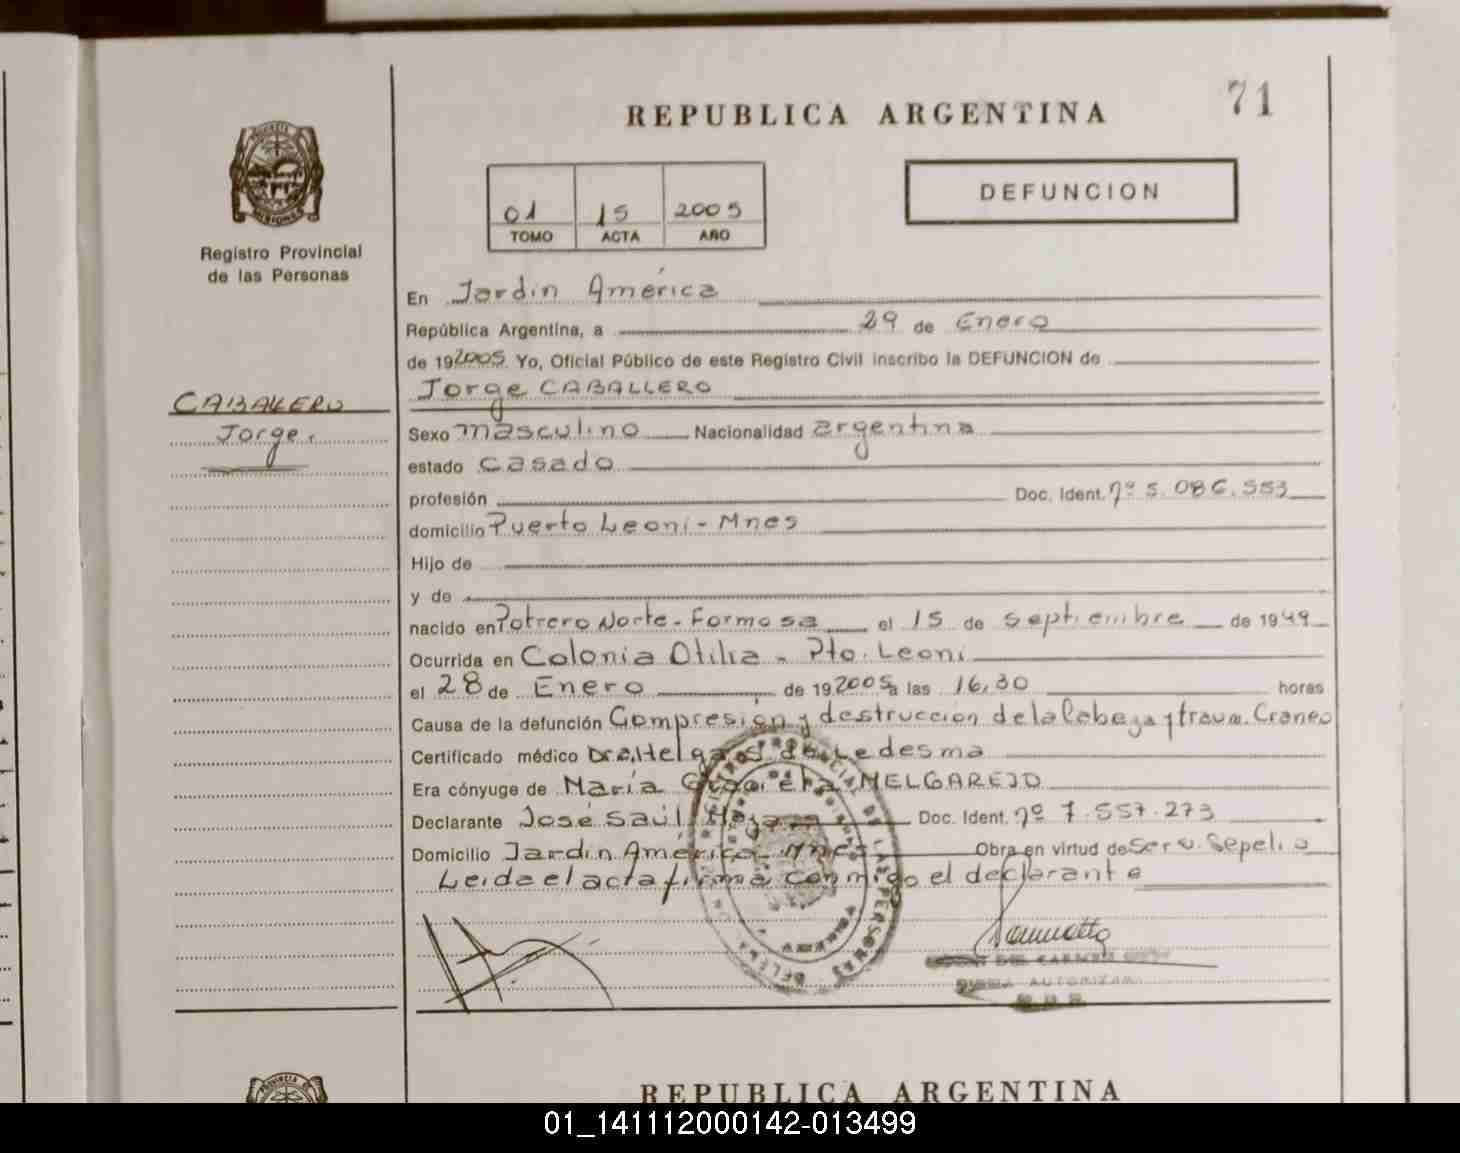 71
REPUBLICA ARGENTINA
PROVINCIA DE
MISIONES
Registro Provincial
de las Personas
DEFUNCION
01 15 2005
TOMO ACTA AÑO
En Jardin América
República Argentina, a 29 de Enero
de 192005. Yo, Oficial Público de este Registro Civil inscribo la DEFUNCION de
Jorge CABALLERO
CABALLERO
Jorge.
Sexo masculino Nacionalidad argentina
estado casado
profesión Doc. Ident. nº 5.086.553
domicilio Puerto Leoni - Mnes
Hijo de
y de
nacido en Potrero Norte - Formosa el 15 de septiembre de 1949
Ocurrida en Colonia Otilia - Pto. Leoni
el 28 de Enero de 192005 a las 16,30 horas
Causa de la defunción Compresion y destruccion de la Cabeza y traum. Craneo
Certificado médico Dra. Helga de Ledesma
Era cónyuge de María MELGAREJO
Declarante José Saúl Doc. Ident. nº 7.557.273
Domicilio Jardin América - Mnes Obra en virtud de Serv. Sepelio
Leida el acta firma conmigo el declarante
DEL CARMEN
AUTORIZA
REPUBLICA ARGENTINA
01_141112000142-013499